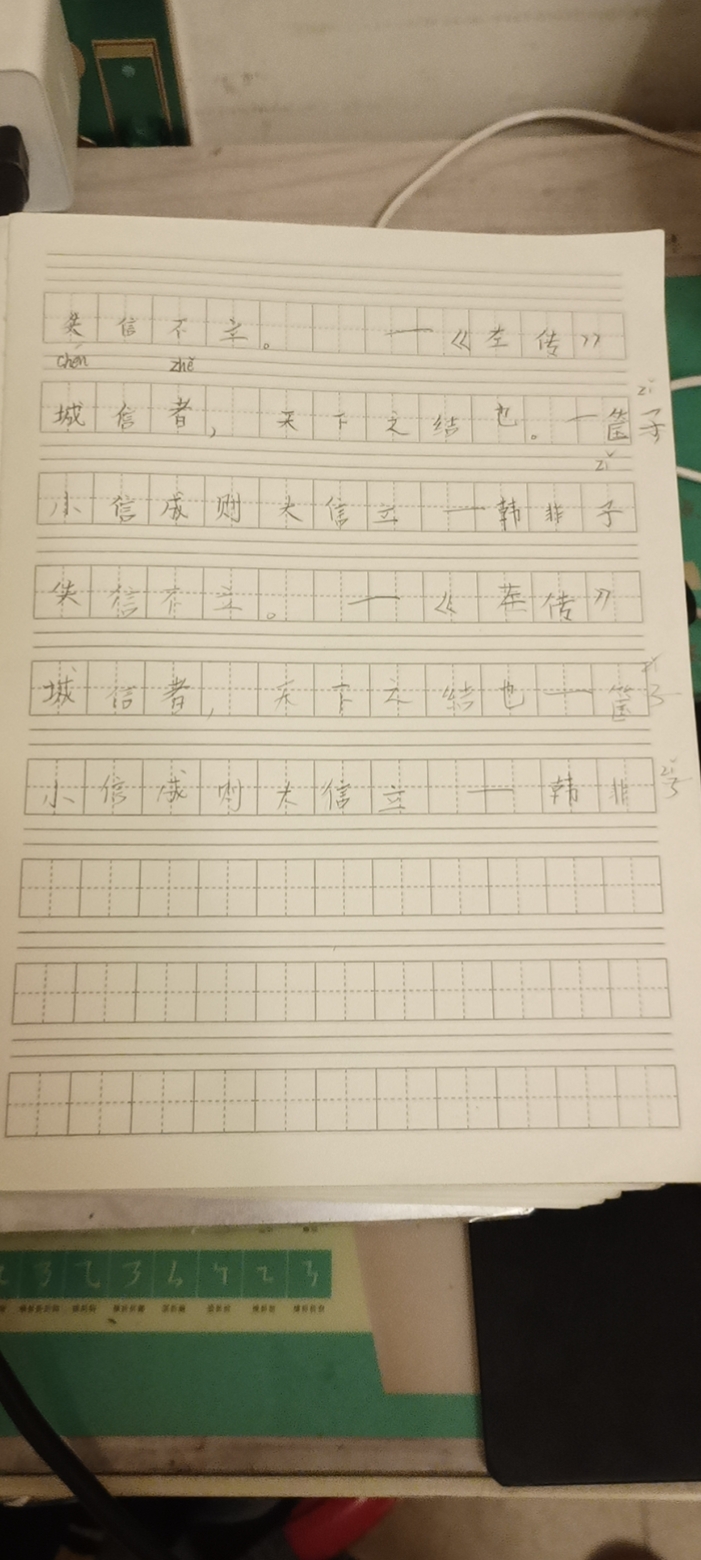 失信不立。 —《左传》
chén zhě
城信者， 天下之结也。一管子
zǐ
zǐ
小信成则大信立 —韩非子
失信不立。 —《左传》
城信者， 天下之结也一管子
zǐ
小信成则大信立 —韩非子
zǐ